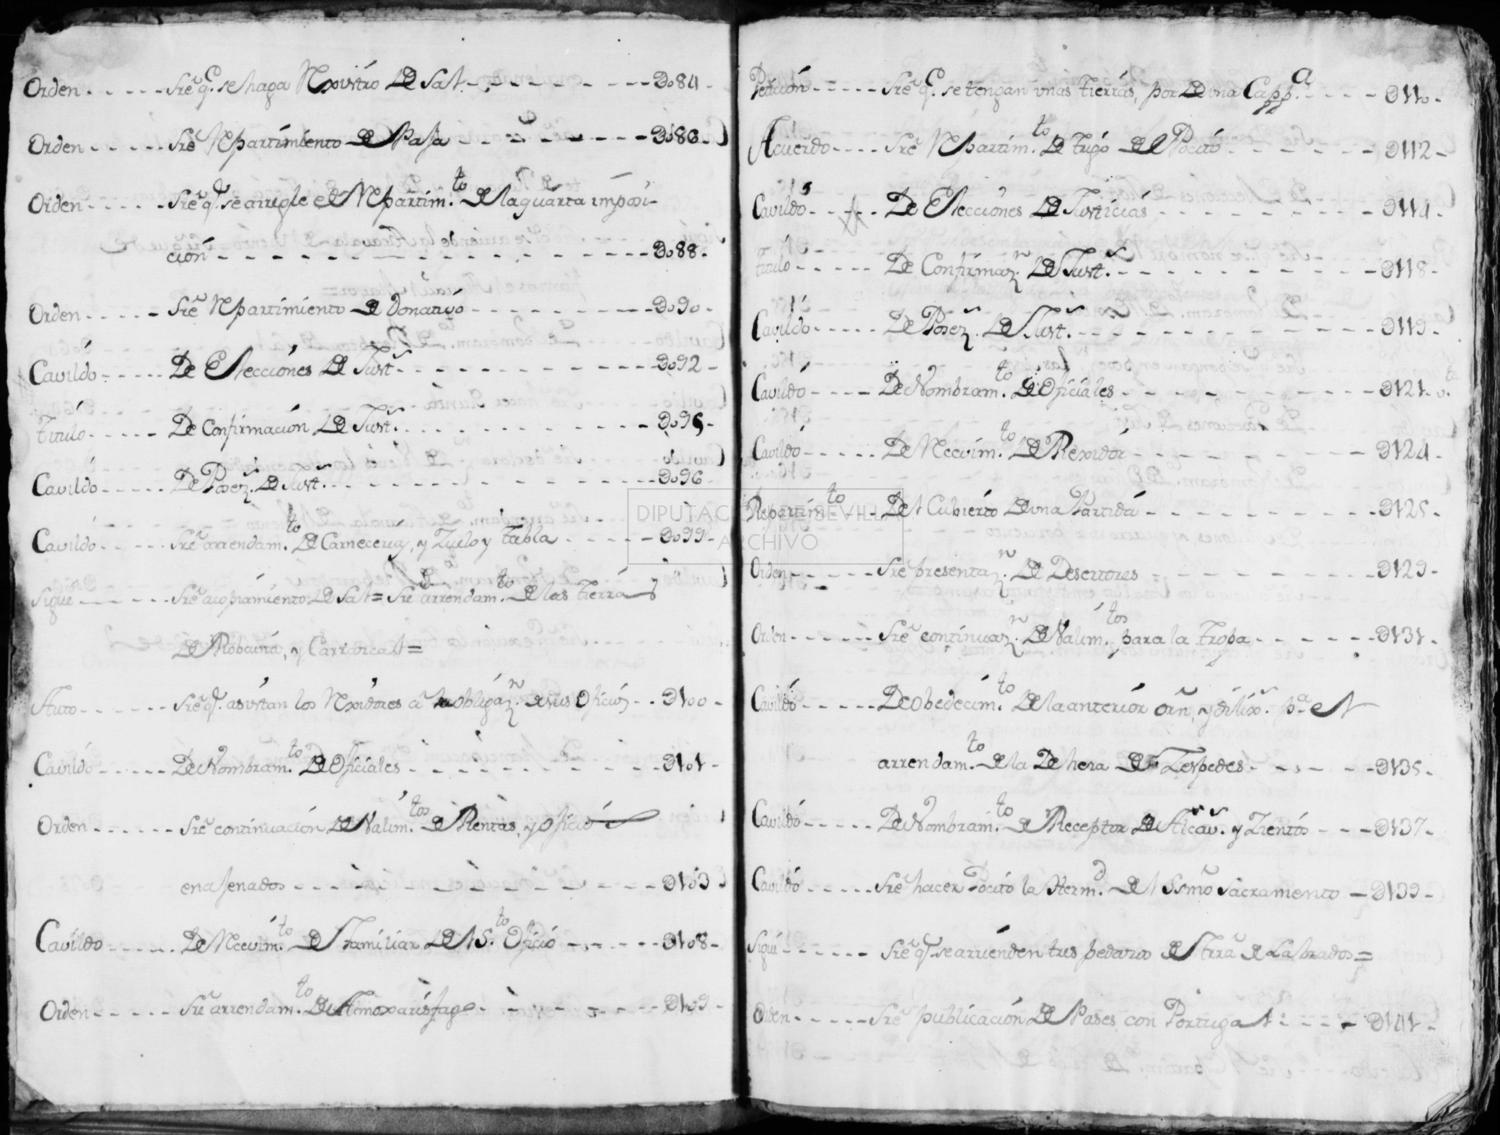 Orden - - - - - Sre. q. se haga Rexistro De Sal - - - - - - - 0084 -
Orden - - - - Sre Repartimiento de Paja - - - - - - - 0086 -
Orden - - - - - Sre q. se arregle el Repartim.to de la quarta impoi-
ción - - - - - - - - - - - - - - - 0088.
Orden - - - - Sre Repartimiento de Donativo - - - - - - - 0090 -
Cavildo - - - - - De Elecciónes De Just.s - - - - - - - - - 0092 -
Titulo - - - - - De Confirmación De Just.s - - - - - - - - - 0095 -
Cavildo - - - - - De Poz.n De Just.s - - - - - - - - - - - - 0096 -
Cavildo - - - - - Sre arrendam.to De Carneceria, y Zuelo y tabla - - - - 0099 -
Sigue - - - - - Sre acopiamiento De Sal = Sre arrendam.to de las tierras
De Robaina, y Carrascal =
Auto - - - - - - Sre q. asistan los Rexidores a la obligaz.n de sus Oficios - - 0100 -
Cavildo - - - - - De Nombram.to De Oficiales - - - - - - - - - 0101 -
Orden - - - - - Sre continuación De Valim.tos de Rentas, y Ofició
enajenados - - - - - - - - - - - 0103
Cavildo - - - - - De Recivim.to del Familiar Del S.to Ofició - - - - - 0108 -
Orden - - - - - Sre arrendam.to De Almoxarifasgo - - - - - - - 0109 -
Petición - - - - - Sre q. se tengan unas tierras, por De una Capp.a - - - - 0110 -
Acuerdo - - - - Sre Repartim.to De trigo del Pocito - - - - - - - 0112 -
Cavildo - - - - De Elecciónes De Justicias - - - - - - - - - 0114 -
Titulo - - - - - De Confirmaz.n De Just.s - - - - - - - - - - 0118 -
Cavildo - - - - - De Poz.n De Just.s - - - - - - - - - - - - 0119 -
Cavildo - - - - - De Nombram.to de Oficiales - - - - - - - - - 0121 -
Cavildo - - - - - De Recivim.to De Rexidor - - - - - - - - - - 0124 -
Repartim.to - - De el Cubierto De una Partida - - - - - - - - 0125 -
Orden - - - - - - Sre presentaz.n De Desertores - - - - - - - - 0129 -
Orden - - - - - - Sre continuaz.n De Valim.tos para la tropa - - - - - 0131 -
Cavildo - - - - - De Obedecim.to De la anterior orn, y dilix.s p.a el
arrendam.to de la Dehesa de Zespedes - - - - - - 0135 -
Cavildo - - - - - De Nombram.to de Receptor De Alcav.s y Zientos - - - - 0137 -
Cavildo - - - - - Sre hacer Pocito la Herm.d del Ssmo Sacramento - 0139 -
Sigue - - - - - - Sre q. se arrienden tres pedazos de trra de Labrados =
Orden - - - - - - Sre publicación De Pases con Portugal - - - - 0141 -
DIPUTACIÓN DE SEVILLA
ARCHIVO